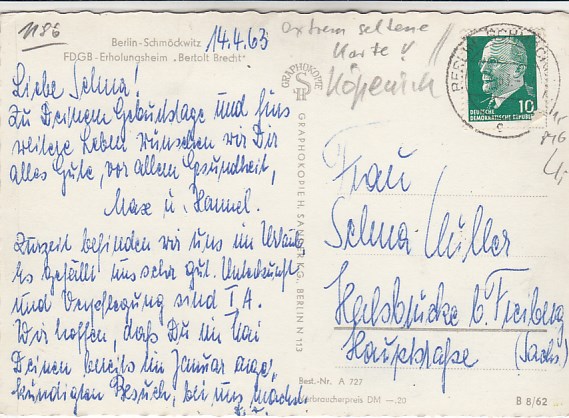 1186
Berlin-Schmöckwitz 14.4.63
FDGB-Erholungsheim „Bertolt Brecht"
Liebe Selma!
Zu Deinem Geburtstage und fürs
weitere Leben wünschen wir Dir
alles Gute, vor allem Gesundheit,
Max u. Hannel.
Zurzeit befinden wir uns im Urlaub
Es gefällt uns sehr gut. Unterkunft
und Verpflegung sind I A.
Wir hoffen, daß Du im Mai
Deinen bereits im Januar ange-
kündigten Besuch, bei uns machst.
extrem seltene
Karte!
Köpenick
GRAPHOKOPIE
GRAPHOKOPIE H. SANDER KG. BERLIN N 113
BERLIN-SCHM
c
10
DEUTSCHE
DEMOKRATISCHE REPUBLIK
Frau
Selma Müller
Halsbrücke b. Freiberg
Hauptstraße (Sachs)
Best.-Nr. A 727
Verbraucherpreis DM —.20
B 8/62